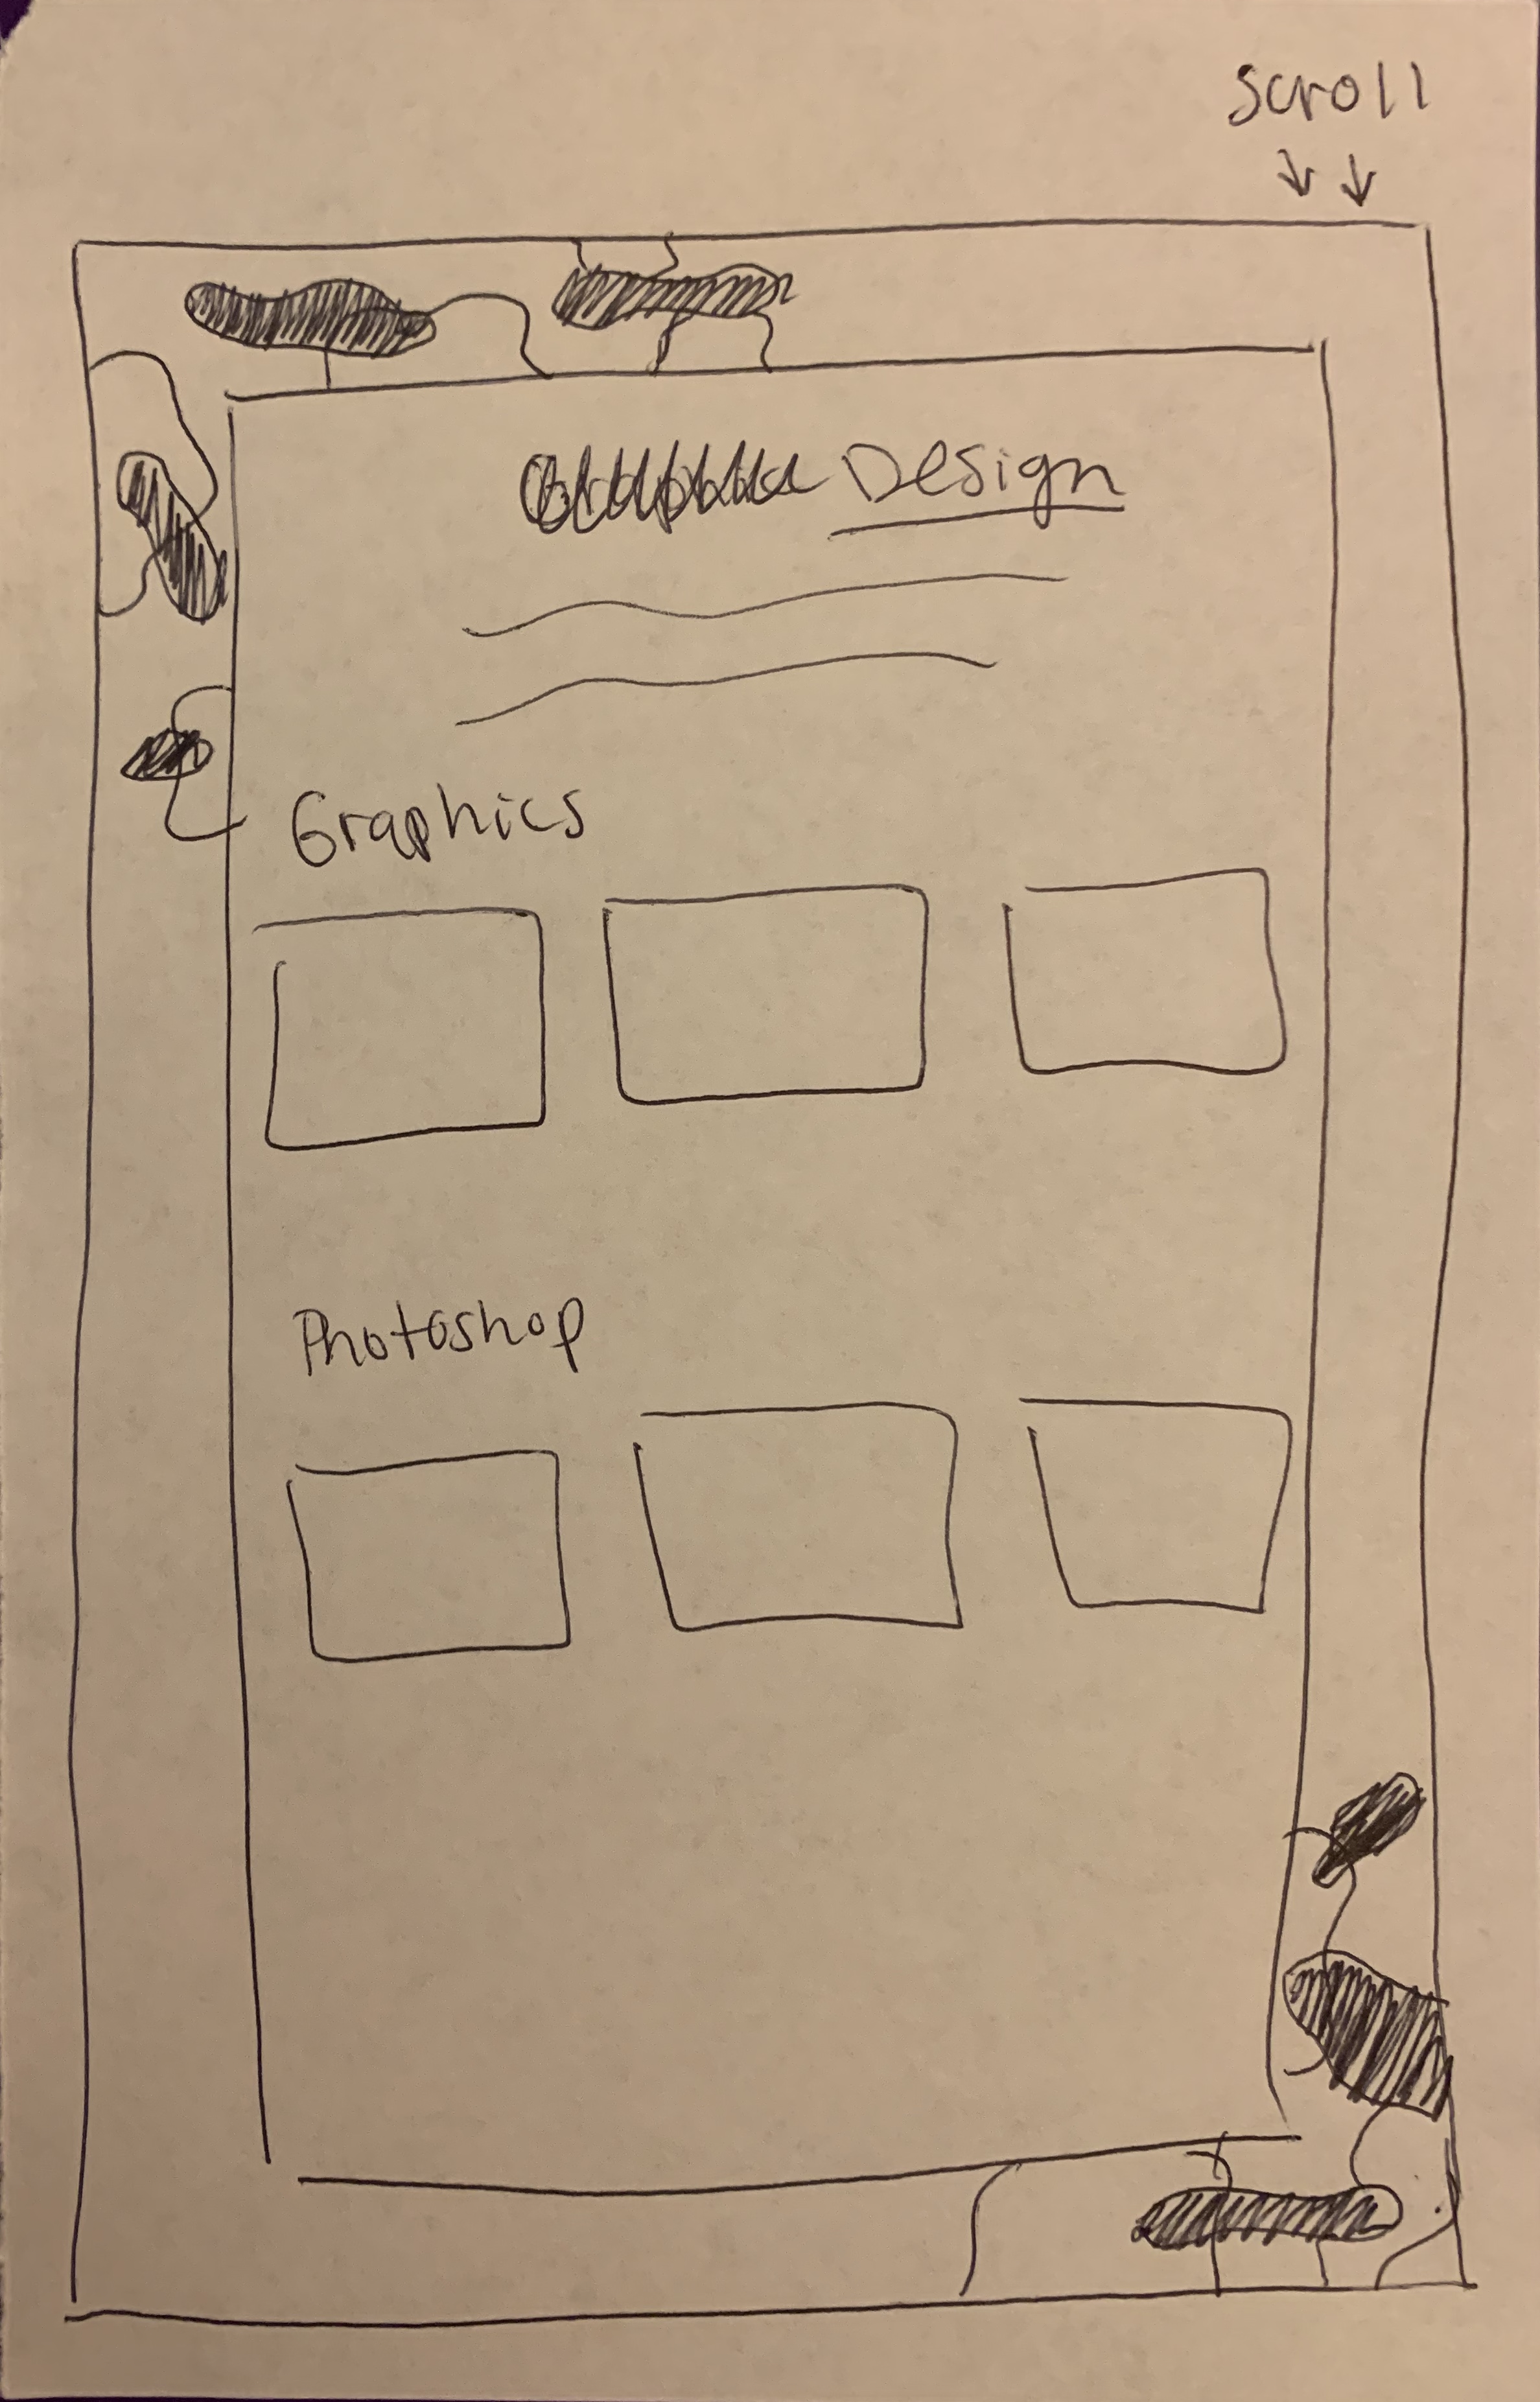 scroll
Design
Graphics
Photoshop